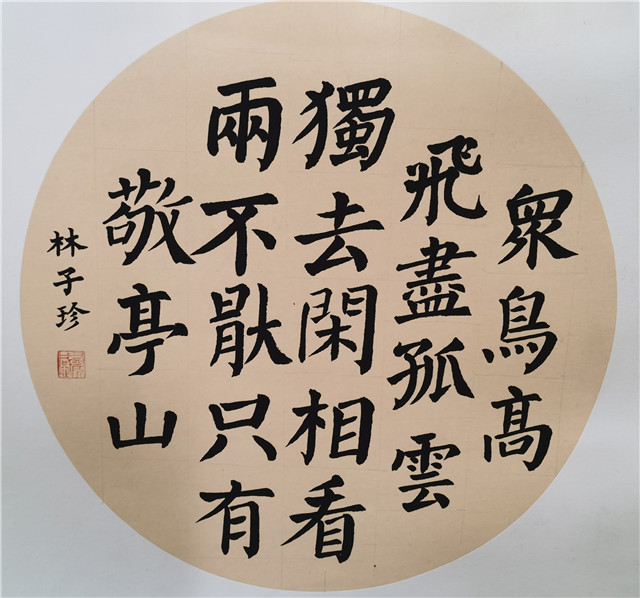 眾鳥髙
飛盡孤雲
獨去閑相看
兩不猒只有
敬亭山
林子珍